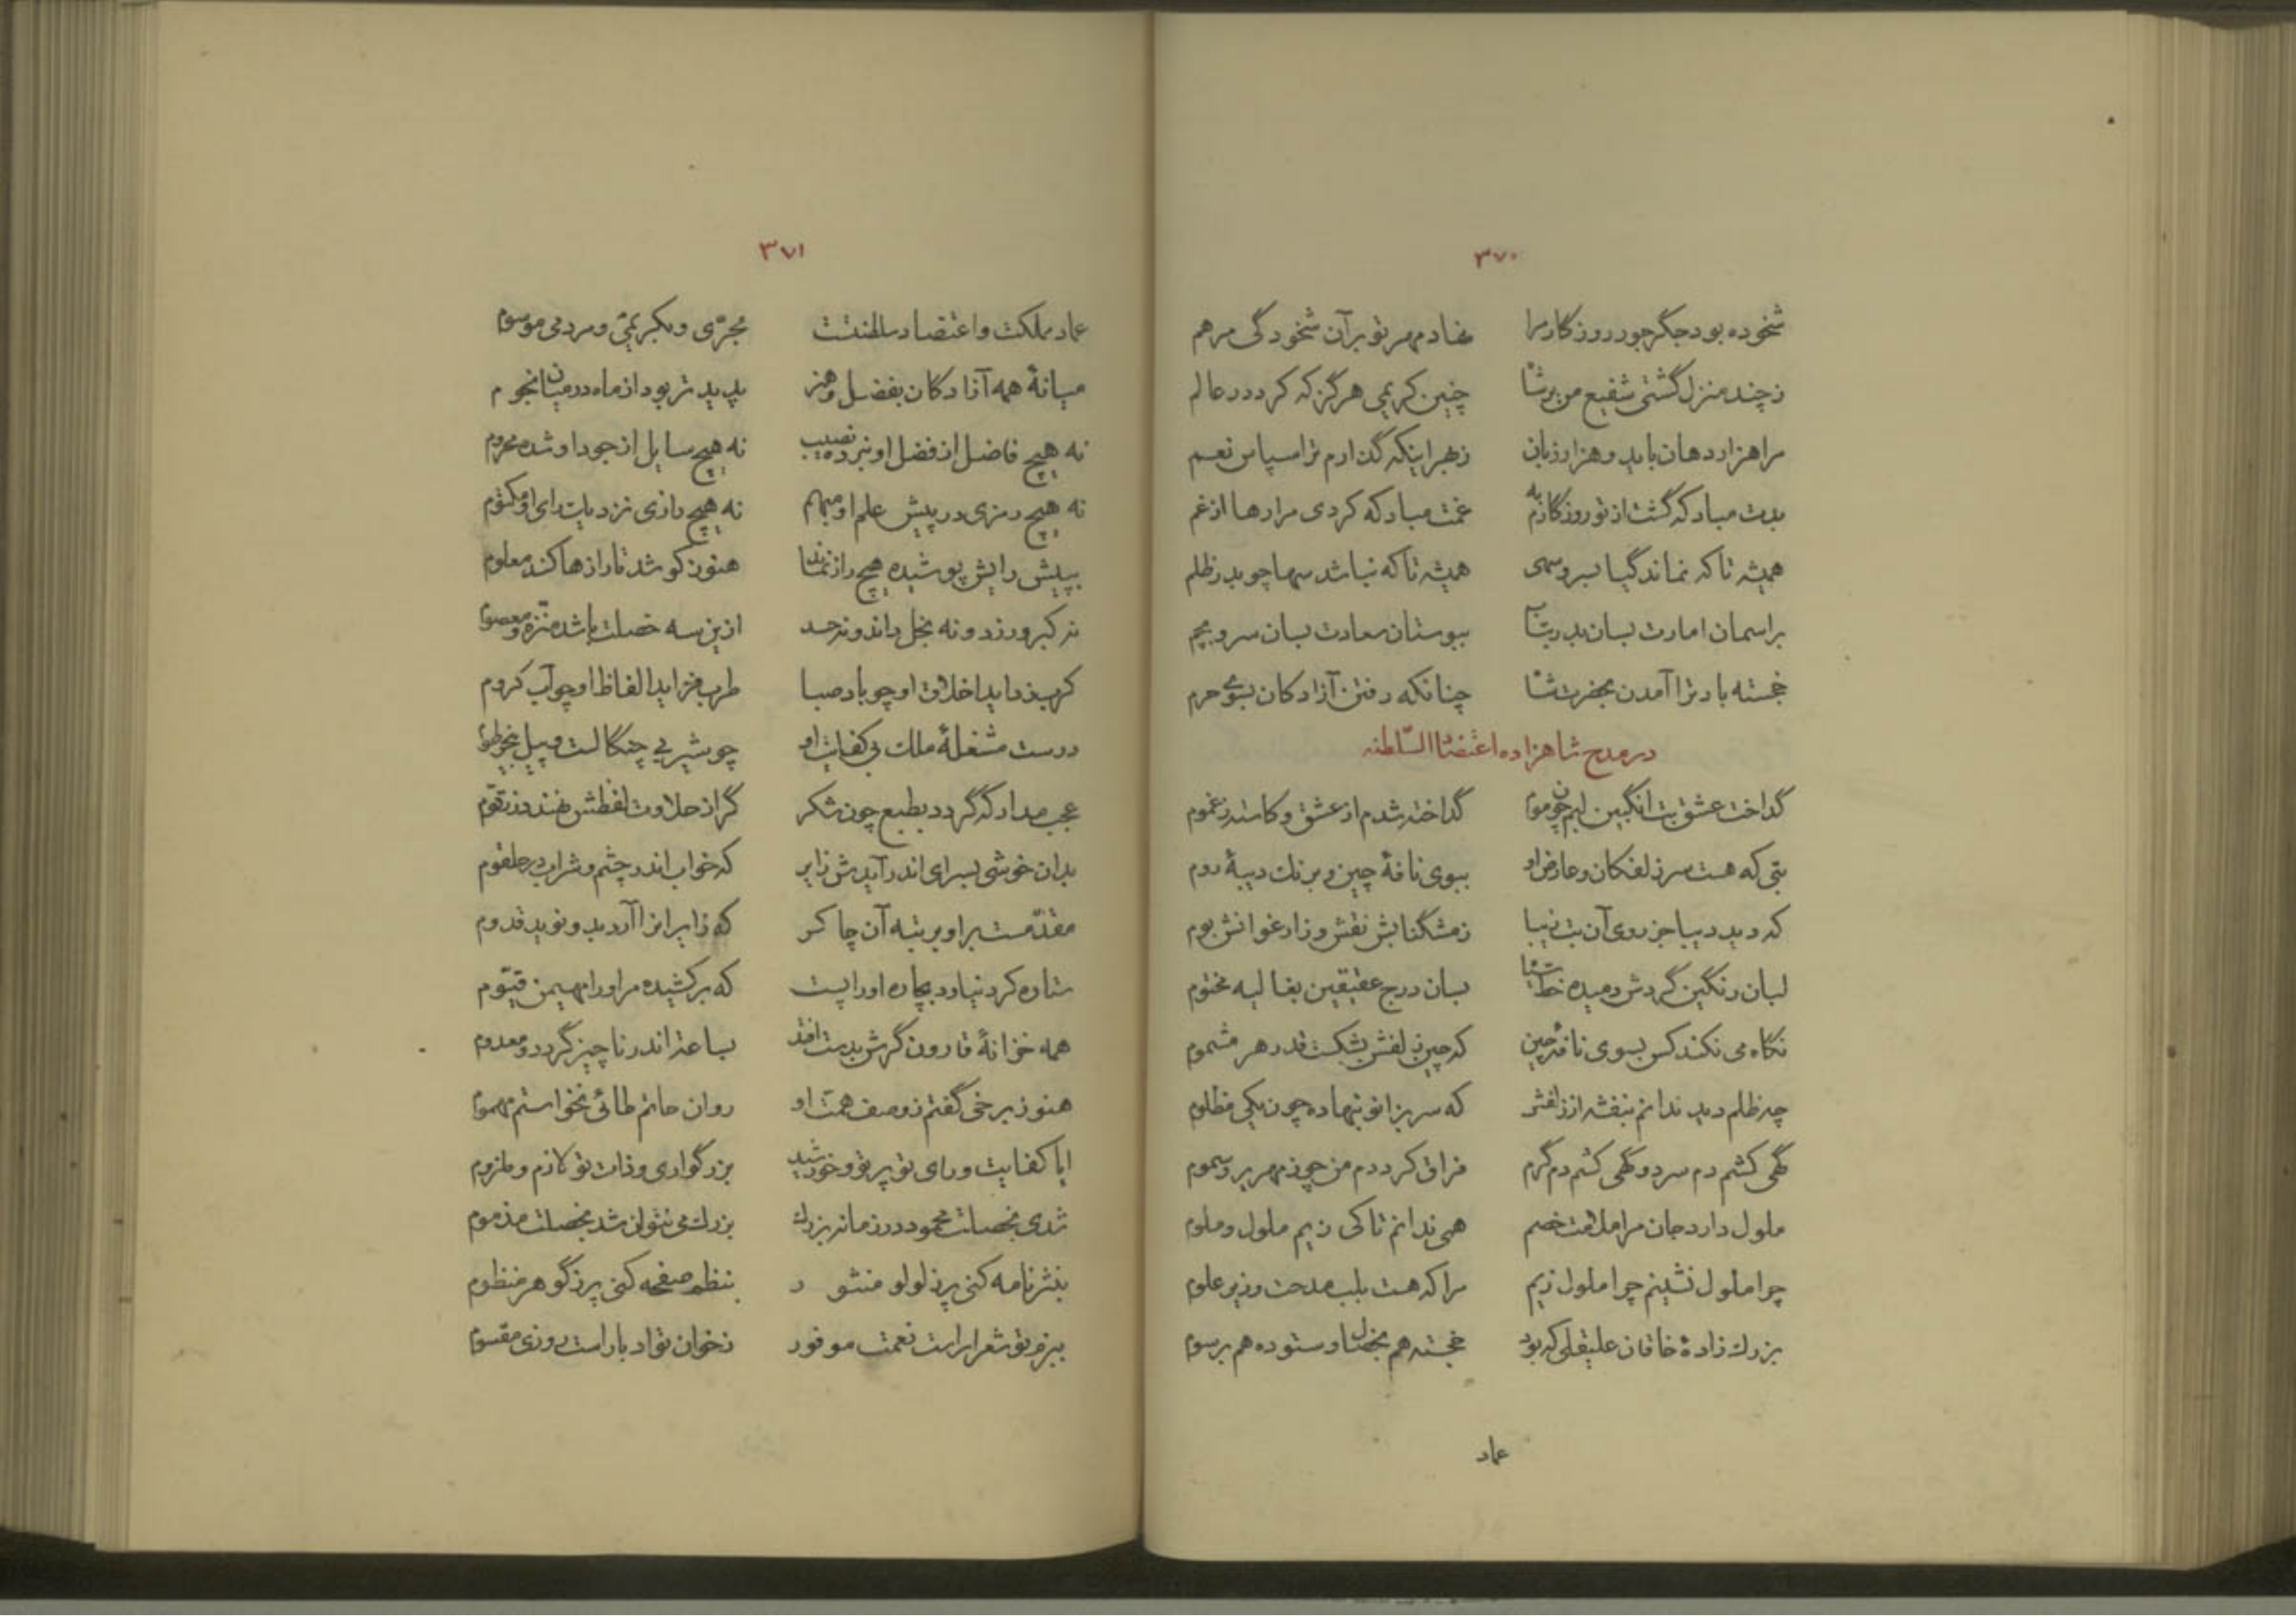 ۳۷۰
شخوده بود جگر جور روزگار مرا نهاد مهر تو بر آن شخودگی مرهم
ز چند منزل گشتی شفیع من بر شاه چنین کریمی هرگز که کرد در عالم
مرا هزار دهان باید و هزار زبان ز بهر اینکه گذارم ترا سپاس نعم
بدت مباد که گشت از تو روزگارم به غمت مباد که کردی مرا رها از غم
همیشه تا که نماند گیا بسرو سهی همیشه تا که نباشد سها چو بدر ظلم
بر اسمان امارت بسان بدر بتاب ببوستان سعادت بسان سرو بچم
خجسته باد ترا آمدن بحضرت شاه چنانکه رفتن آزادکان بسوی حرم
در مدح شاهزاده اعتضاد السّلطنه
گداخت عشق بت انگبین لبم چون موم گداخته شدم از عشق و کاسته ز غموم
بتی که هست سر زلفکان و عارض او ببوی نافهٔ چین و برنک دیبهٔ روم
که دید دیبا جز روی آن بت زیبا ز مشگنابش نقش و ز ارغوانش بوم
لبان رنگین گردش دمیده خط سیاه بسان درج عقیقین بغالیه مختوم
نگاه می نکند کس بسوی نافهٔ چین که چین زلفش بشکست قدر هر مشموم
چه ظلم دید ندانم بنفشه از زلفش که سر بزانو بنهاده چون یکی مظلوم
گهی کشم دم سرد و گهی کشم دم گرم فراق کرد دم من چو زمهریر و سموم
ملول دارد جان مرا ملامت خصم همی ندانم تا کی زیم ملول و ملوم
چرا ملول نشینم چرا ملول زیم مرا که هست بلب مدحت وزیر علوم
بزرك زادهٔ خاقان علیقلی که بود خجسته هم بخصال و ستوده هم برسوم
عماد
۳۷۱
عماد مملکت و اعتضاد سلطنتت مجرّی و بکریمی و مردمی موسوم
میانهٔ همه آزادکان بفضل و هنر پدید تر بود از ماه در میان انجوم
نه هیچ فاضل از فضل او نبرده نصیب نه هیچ سایل از جود او شده محروم
نه هیچ رمزی در پیش علم او مبهم نه هیچ رازی نزدیك رای او مکتوم
بپیش رایش پوشیده هیچ راز نماند هنوز کوشد تا رازها کند معلوم
نه کبر ورزد و نه بخل داند و نه حسد ازین سه خصلت باشد منزّه و معصوم
کرب زداید اخلاق او چو باد صبا طرب فزاید الفاظ او چو آب کروم
درست مشغلهٔ ملك بی کفایت او چو شیر بی چنگالست و پیل بی خرطوم
عجب مدار که گردد بطبع چون شکر گر از حلاوت لفظش نهند در زقّوم
بدان خوشی بسرای اندر آیدش زایر که خواب اندر چشم و شراب در حلقوم
مقدّمست بر او برتبه آن چاکر که زایرانرا آرد بدو نوید قدوم
ستاره کرد نیارد بچاره او را پست که برکشیده مر او را مهیمن قیّوم
همه خزانهٔ قارون گرش بدست افتد بساعتی اندر ناچیز گردد و معدوم
هنوز برخی گفتم ز وصف همت او روان حاتم طائی نخواستم مهموم
ایا کفایت و رای تو پرتو و خورشید بزرگواری و ذات تو لازم و ملزوم
شدی بخصلت محمود در زمانه بزرك بزرك می نتوان شد بخصلت مذموم
بنثر نامه کنی پر ز لولو منثور بنظم صفحه کنی پر ز گوهر منظوم
ببزم تو شعرا راست نعمت موفور ز خوان تو ادبا راست روزی مقسوم